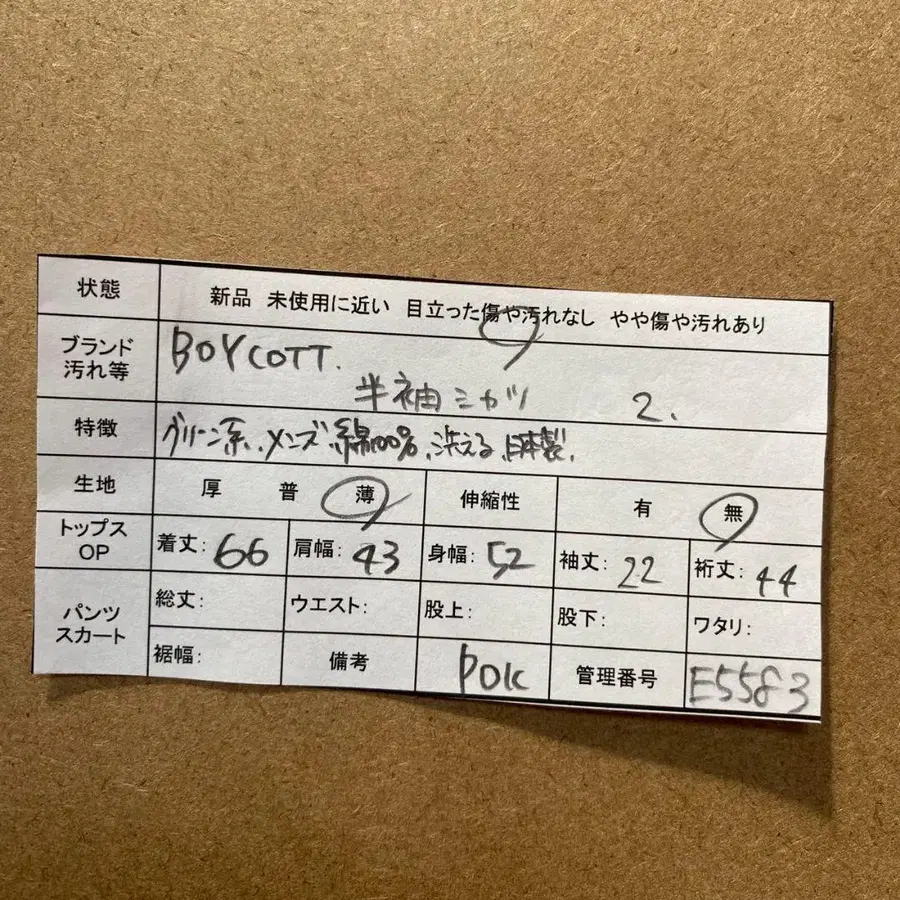 状態 新品 未使用に近い 目立った傷や汚れなし やや傷や汚れあり
ブランド
汚れ等
BOYCOTT.
半袖シャツ 2.
特徴 グリーン系、メンズ、綿100%、洗える、日本製、
生地 厚 普 薄 伸縮性 有 無
トップス
OP
着丈: 66 肩幅: 43 身幅: 52 袖丈: 22 裄丈: 44
パンツ
スカート
総丈: ウエスト: 股上: 股下: ワタリ:
裾幅: 備考 POK 管理番号 E5583